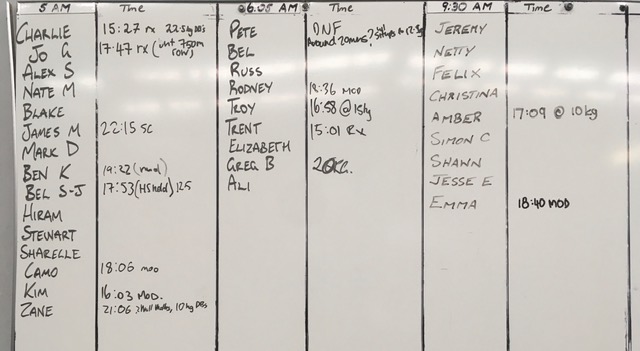 5 AM Time 6.05 AM Time 9:30 AM Time
CHARLIE 15:27 rx 22.5kg DBs
JO G 17:47 rx (wht 750m row)
ALEX S
NATE M
BLAKE
JAMES M 22:15 SC
MARK D
BEN K 19:22 (mod)
BEL S-J 17:53 (HS hold) 125
HIRAM
STEWART
SHARELLE
CAMO 18:06 MOD
KIM 16:03 MOD.
ZANE 21:06 10kg DBs
PETE DNF Around 20mins,
BEL
RUSS
RODNEY 18:36 MOD
TROY 16:58 @ 15kg
TRENT 15:01 RX
ELIZABETH
GREG B 20KG.
ALI
JEREMY
NETTY
FELIX
CHRISTINA
AMBER 17:09 @ 10kg
SIMON C
SHAWN
JESSE E
EMMA 18:40 MOD